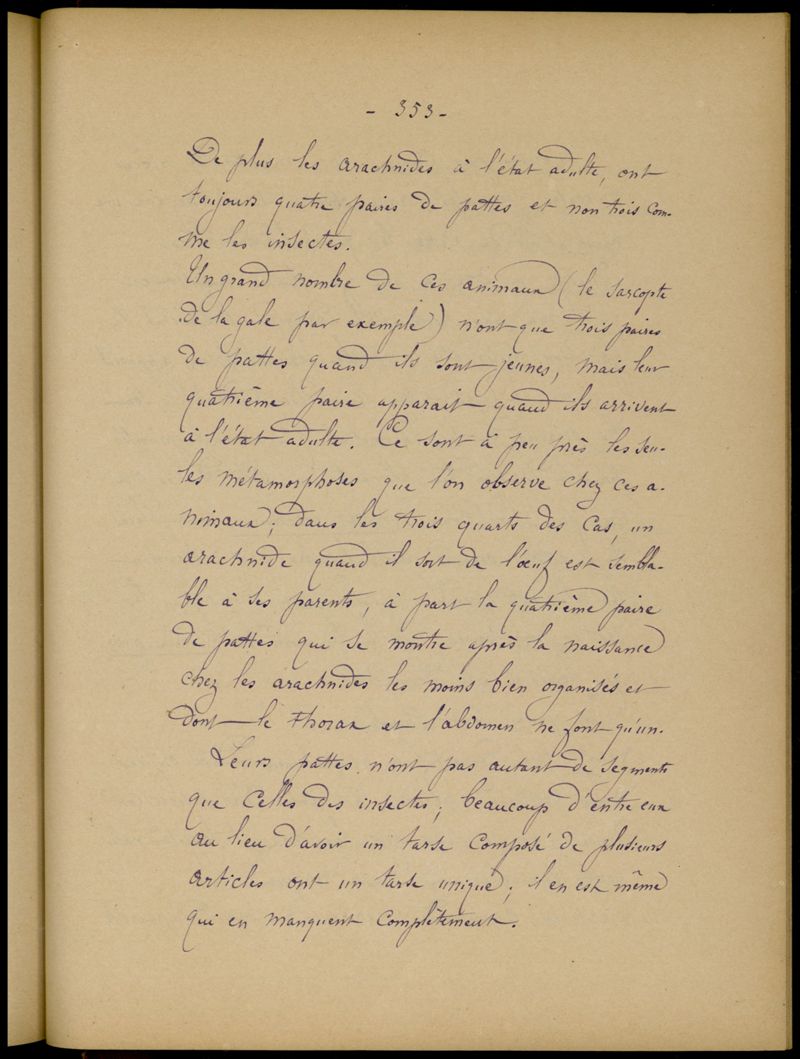 - 353 -
De plus les arachnides à l'état adulte, ont
toujours quatre paires de pattes et non trois com-
me les insectes.
Un grand nombre de ces animaux (le sarcopte
de la gale par exemple) n'ont que trois paires
de pattes quand ils sont jeunes, mais leur
quatrième paire apparait quand ils arrivent
à l'état adulte. Ce sont à peu près les seu-
les métamorphoses que l'on observe chez ces a-
nimaux; dans les trois quarts des cas, un
arachnide quand il sort de l'œuf est sembla-
ble à ses parents, à part la quatrième paire
de pattes qui se montre après la naissance
chez les arachnides les moins bien organisés et
dont le thorax et l'abdomen ne font qu'un.
Leurs pattes n'ont pas autant de segments
que celles des insectes; beaucoup d'entre eux
au lieu d'avoir un tarse composé de plusieurs
articles ont un tarse unique; il en est même
qui en manquent complètement.